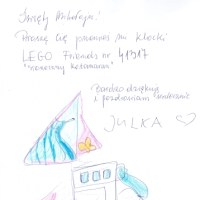 Święty Mikołaju!
Proszę Cię przynieś mi klocki
LEGO Friends nr 41317
"Słoneczny Katamaran"
Bardzo dziękuję
i pozdrawiam serdecznie
JULKA